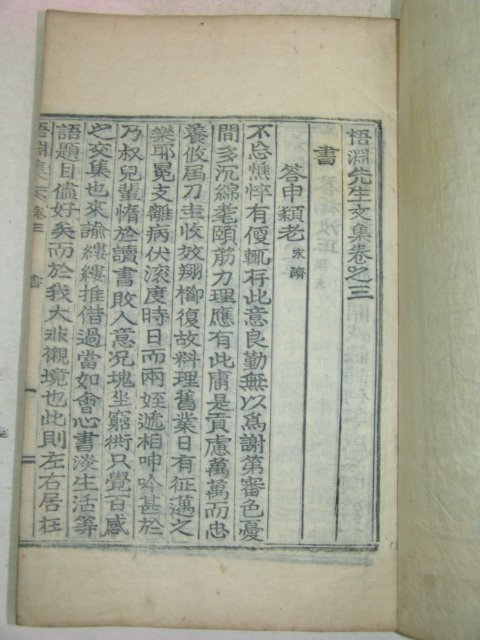 悟淵先生文集卷之三
書
答申穎老 家濟
不忘憔悴有便輒存此意良勤無以爲謝第審色憂
間多沉綿耄頤筋力理應有此庸是貢慮萬萬而忠
養攸屆刀圭收效翔櫛復故料理舊業日有征邁之
樂耶冕支離病伏深度時日而兩姪遞相呻吟甚於
乃叔兒輩惰於讀書敗人意况塊坐窮衖只覺百感
之交集也來諭縷縷推借過當如會心書淡生活等
語題目儘好矣而於我大非襯境也此則左右居在
悟淵集 卷三 書